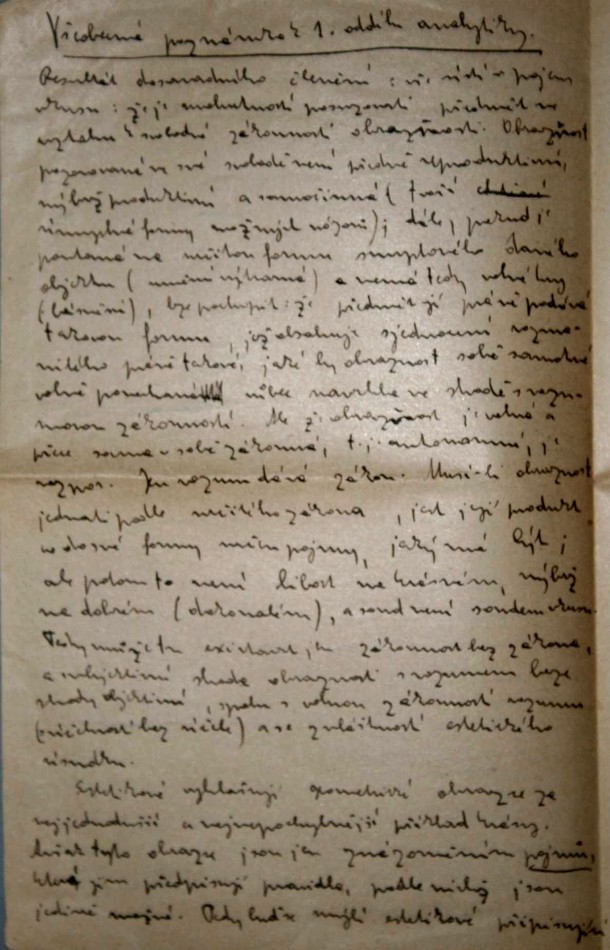 Všeobecná poznámka k 1. oddílu analytiky.
Resultát dosavadního členění: vše ústí v pojem
vkusu: že je mohutností posuzovati předmět ve
vztahu k svobodné zákonnosti obrazivosti. Obrazivost
pozorovaná ve své svobodě není předně reproduktivní,
nýbrž produktivní a samočinná (tvoří
úmyslné formy možných názorů); dále, pokud je
poutaná na určitou formu smyslového daného
objektu ( ) a nemá tedy volné hry
(básnění), lze pochopit: že předmět jí právě podává
takovou formu, jež obsahuje sjednocení rozma-
nitého právě takové, jaké by obraznost sobě samotné
volně ponechaná vůbec navrhla ve shodě s rozu-
movou zákonností. Ale že obrazivost je volná a
přece sama v sobě zákonná, t.j. autonomní, je
rozpor. Jen rozum dává zákon. Musí-li obraznost
jednati podle určitého zákona, jest její produkt
co do své formy určen pojmy, jaký má být;
ale potom to není libost na krásném, nýbrž
na dobrém (dokonalém), a soud není soudem vkusu.
Tedy může tu existovat jen zákonnost bez zákona,
a subjektivní shoda obraznosti s rozumem beze
shody objektivní, spolu s volnou zákonností rozumu
(účelnost bez účele) a se zvláštností estetického
úsudku.
Estetikové vyhlašují geometrické obrazce za
nejjednodušší a nejnepochybnější příklad krásy.
Avšak tyto obrazce jsou jen znázorněním pojmů,
které jim předpisují pravidla, podle nichž jsou
jedině možné. Tedy buďže mýlí estetikové připisující